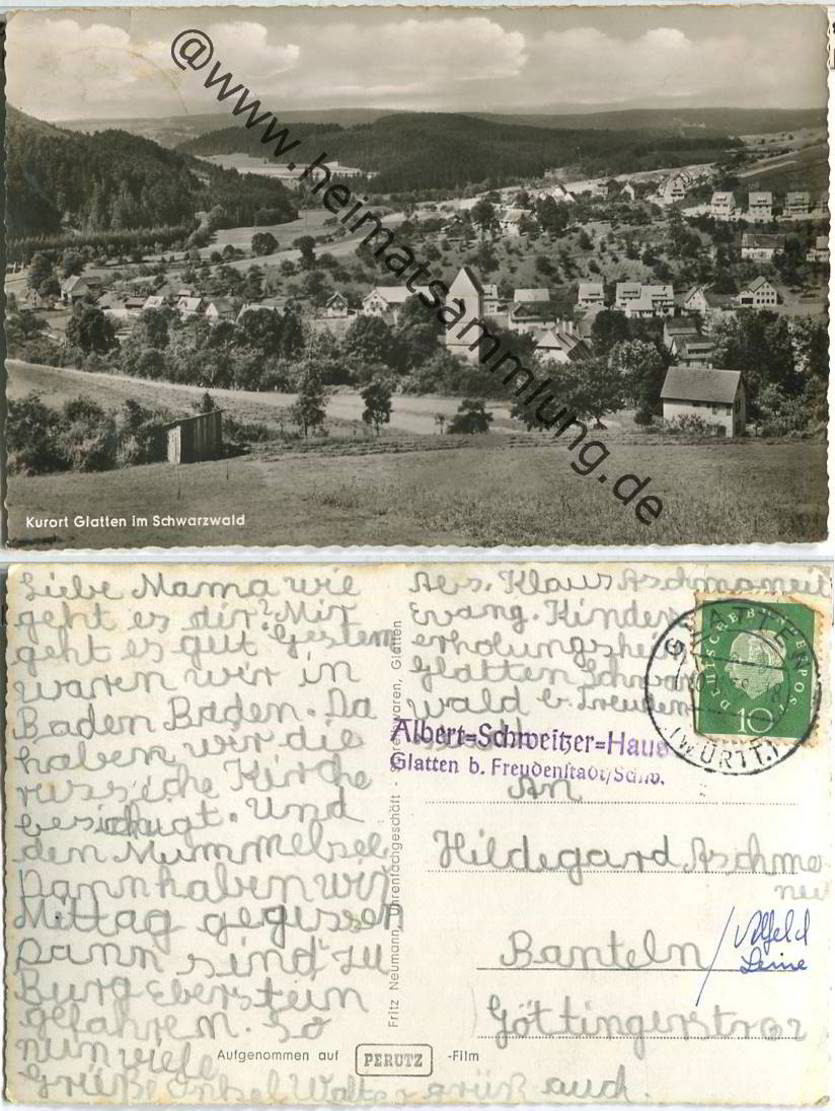 @www.heimatsammlung.de
Kurort Glatten im Schwarzwald
Liebe Mama wie
geht es dir? Mir
geht es gut Gestern
waren wir in
Baden Baden. Da
haben wir die
russische Kirche
besichtigt. Und
den Mummelsee
Dann haben wir
Mittag gegessen
Dann sind zu
Burg Eberstein
gefahren. So
nun viele
Grüße Onkel Walter grüß auch.
Fritz Neumann, Uhrenfachgeschäft - Schreibwaren, Glatten
Aufgenommen auf PERUTZ -Film
Abs. Klaus Aschmoneit
Evang. Kinder
erholungsheim
Glatten Schwarz
wald b. Freuden
GLATTEN
(WÜRTT.)
DEUTSCHE BUNDESPOST
10
Albert-Schweitzer-Haus
Glatten b. Freudenstadt/Schw.
An
Hildegard Aschmo
neit
Banteln / Alfeld
Leine
Göttingerstr